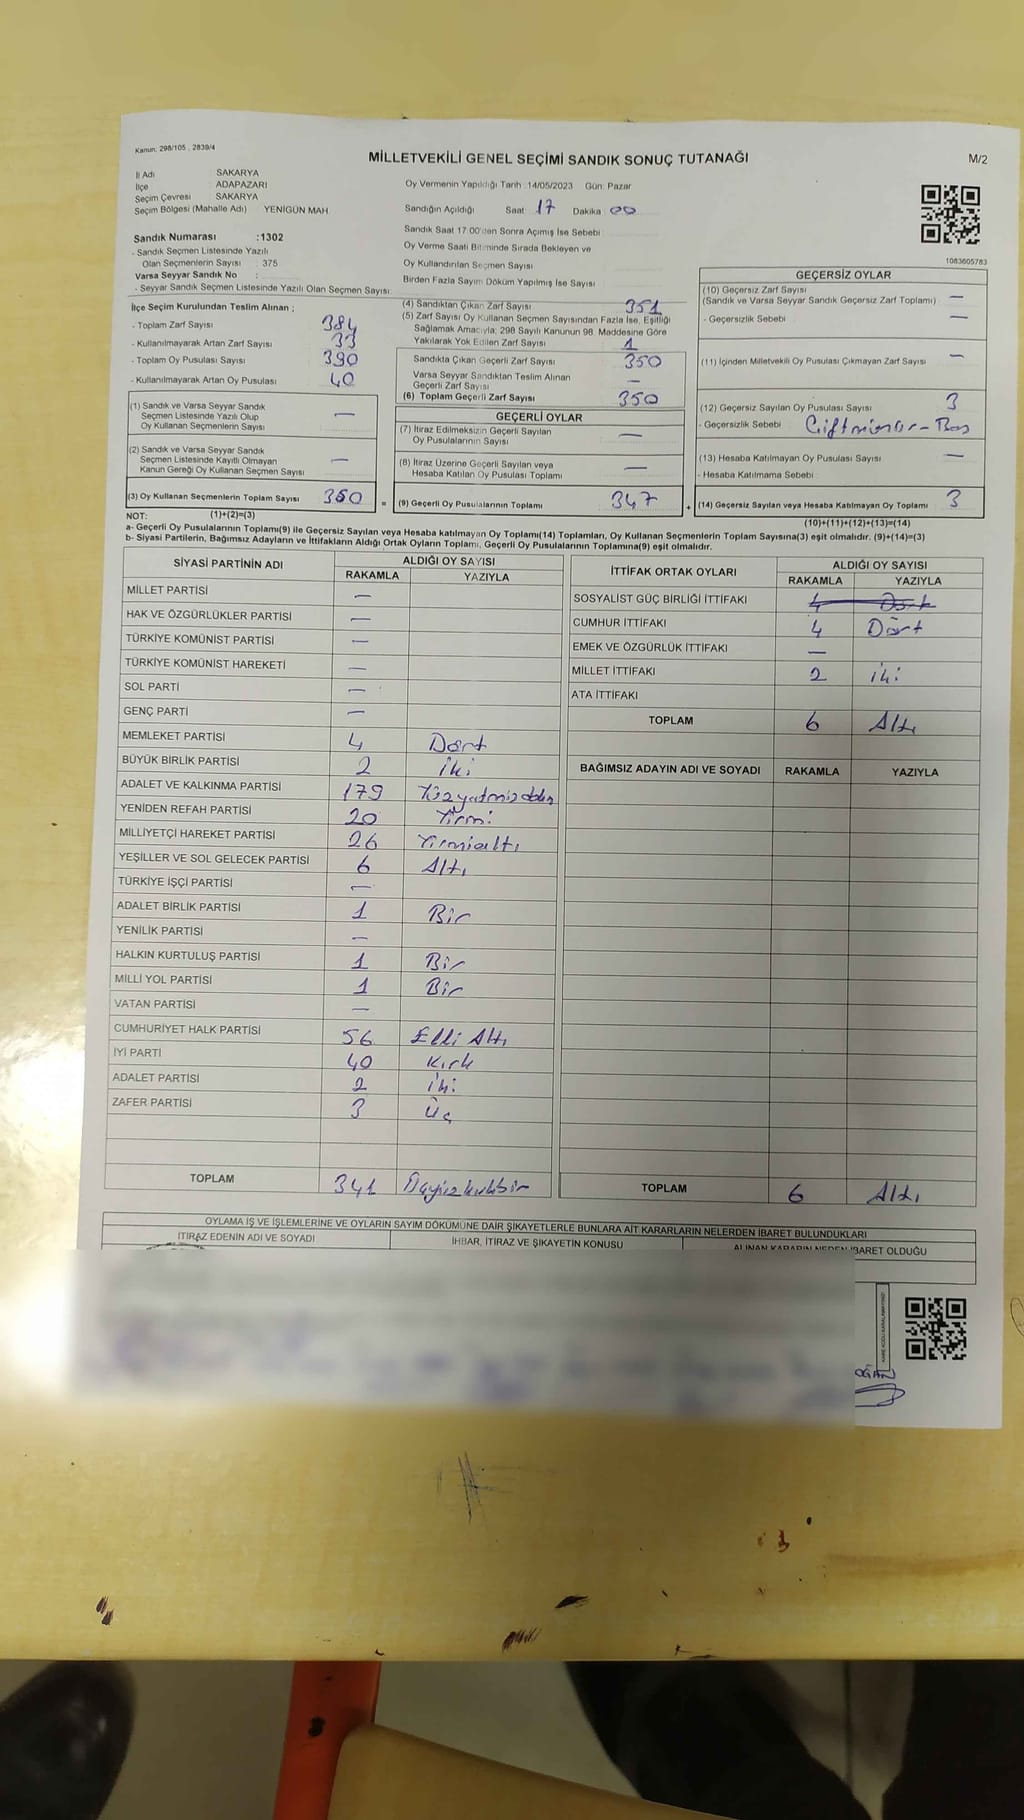 Kanun: 298/105 , 2839/4
MİLLETVEKİLİ GENEL SEÇİMİ SANDIK SONUÇ TUTANAĞI
M/2
İl Adı SAKARYA
İlçe ADAPAZARI
Seçim Çevresi SAKARYA
Seçim Bölgesi (Mahalle Adı) YENİGÜN MAH
Sandık Numarası :1302
- Sandık Seçmen Listesinde Yazılı
Olan Seçmenlerin Sayısı : 375
Varsa Seyyar Sandık No :
- Seyyar Sandık Seçmen Listesinde Yazılı Olan Seçmen Sayısı:
Oy Vermenin Yapıldığı Tarih :14/05/2023 Gün: Pazar
Sandığın Açıldığı Saat 17 Dakika 00
Sandık Saat 17:00'den Sonra Açımış İse Sebebi :
Oy Verme Saati Bitiminde Sırada Bekleyen ve
Oy Kullandırılan Seçmen Sayısı
Birden Fazla Sayım Döküm Yapılmış İse Sayısı
1083605783
İlçe Seçim Kurulundan Teslim Alınan ;
- Toplam Zarf Sayısı 384
- Kullanılmayarak Artan Zarf Sayısı 33
- Toplam Oy Pusulası Sayısı 390
- Kullanılmayarak Artan Oy Pusulası 40
(1) Sandık ve Varsa Seyyar Sandık
Seçmen Listesinde Yazılı Olup
Oy Kullanan Seçmenlerin Sayısı —
(2) Sandık ve Varsa Seyyar Sandık
Seçmen Listesinde Kayıtlı Olmayan
Kanun Gereği Oy Kullanan Seçmen Sayısı —
(3) Oy Kullanan Seçmenlerin Toplam Sayısı 350 =
(4) Sandıktan Çıkan Zarf Sayısı 351
(5) Zarf Sayısı Oy Kullanan Seçmen Sayısından Fazla İse, Eşitliği
Sağlamak Amacıyla; 298 Sayılı Kanunun 98. Maddesine Göre
Yakılarak Yok Edilen Zarf Sayısı 1
Sandıkta Çıkan Geçerli Zarf Sayısı 350
Varsa Seyyar Sandıktan Teslim Alınan
Geçerli Zarf Sayısı —
(6) Toplam Geçerli Zarf Sayısı 350
GEÇERLİ OYLAR
(7) İtiraz Edilmeksizin Geçerli Sayılan
Oy Pusulalarının Sayısı —
(8) İtiraz Üzerine Geçerli Sayılan veya
Hesaba Katılan Oy Pusulası Toplamı —
(9) Geçerli Oy Pusulalarının Toplamı 347 +
GEÇERSİZ OYLAR
(10) Geçersiz Zarf Sayısı
(Sandık ve Varsa Seyyar Sandık Geçersiz Zarf Toplamı) —
- Geçersizlik Sebebi —
(11) İçinden Milletvekili Oy Pusulası Çıkmayan Zarf Sayısı —
(12) Geçersiz Sayılan Oy Pusulası Sayısı 3
- Geçersizlik Sebebi
(13) Hesaba Katılmayan Oy Pusulası Sayısı —
- Hesaba Katılmama Sebebi
(14) Geçersiz Sayılan veya Hesaba Katılmayan Oy Toplamı 3
NOT: (1)+(2)=(3)
(10)+(11)+(12)+(13)=(14)
a- Geçerli Oy Pusulalarının Toplamı(9) ile Geçersiz Sayılan veya Hesaba katılmayan Oy Toplamı(14) Toplamları, Oy Kullanan Seçmenlerin Toplam Sayısına(3) eşit olmalıdır. (9)+(14)=(3)
b- Siyasi Partilerin, Bağımsız Adayların ve İttifakların Aldığı Ortak Oyların Toplamı, Geçerli Oy Pusulalarının Toplamına(9) eşit olmalıdır.
SİYASİ PARTİNİN ADI ALDIĞI OY SAYISI
RAKAMLA YAZIYLA
MİLLET PARTİSİ —
HAK VE ÖZGÜRLÜKLER PARTİSİ —
TÜRKİYE KOMÜNİST PARTİSİ —
TÜRKİYE KOMÜNİST HAREKETİ —
SOL PARTİ —
GENÇ PARTİ —
MEMLEKET PARTİSİ 4 Dört
BÜYÜK BİRLİK PARTİSİ 2 iki
ADALET VE KALKINMA PARTİSİ 179
YENİDEN REFAH PARTİSİ 20 Yirmi
MİLLİYETÇİ HAREKET PARTİSİ 26 Yirmialtı
YEŞİLLER VE SOL GELECEK PARTİSİ 6 Altı
TÜRKİYE İŞÇİ PARTİSİ —
ADALET BİRLİK PARTİSİ 1 Bir
YENİLİK PARTİSİ —
HALKIN KURTULUŞ PARTİSİ 1 Bir
MİLLİ YOL PARTİSİ 1 Bir
VATAN PARTİSİ —
CUMHURİYET HALK PARTİSİ 56 Elli Altı
İYİ PARTİ 40 Kırk
ADALET PARTİSİ 2 iki
ZAFER PARTİSİ 3 Üç
TOPLAM 341
İTTİFAK ORTAK OYLARI ALDIĞI OY SAYISI
RAKAMLA YAZIYLA
SOSYALİST GÜÇ BİRLİĞİ İTTİFAKI 4 Dört
CUMHUR İTTİFAKI 4 Dört
EMEK VE ÖZGÜRLÜK İTTİFAKI —
MİLLET İTTİFAKI 2 iki
ATA İTTİFAKI
TOPLAM 6 Altı
BAĞIMSIZ ADAYIN ADI VE SOYADI RAKAMLA YAZIYLA
TOPLAM 6 Altı
OYLAMA İŞ VE İŞLEMLERİNE VE OYLARIN SAYIM DÖKÜMÜNE DAİR ŞİKAYETLERLE BUNLARA AİT KARARLARIN NELERDEN İBARET BULUNDUKLARI
İTİRAZ EDENİN ADI VE SOYADI İHBAR, İTİRAZ VE ŞİKAYETİN KONUSU ALINAN KARARIN NEDEN İBARET OLDUĞU